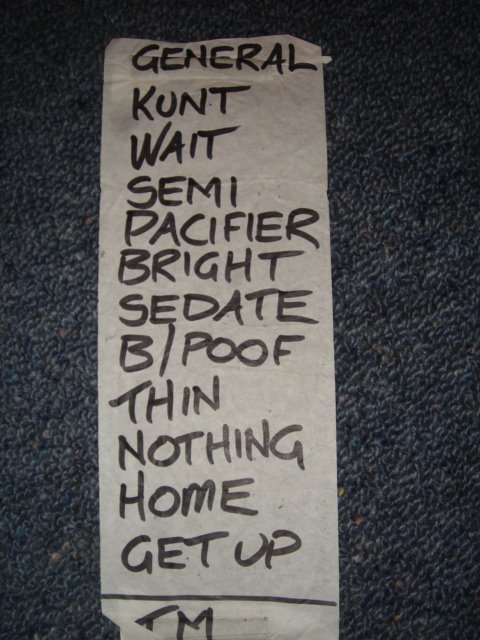 GENERAL
KUNT
WAIT
SEMI
PACIFIER
BRIGHT
SEDATE
B/POOF
THIN
NOTHING
HOME
GET UP
TM